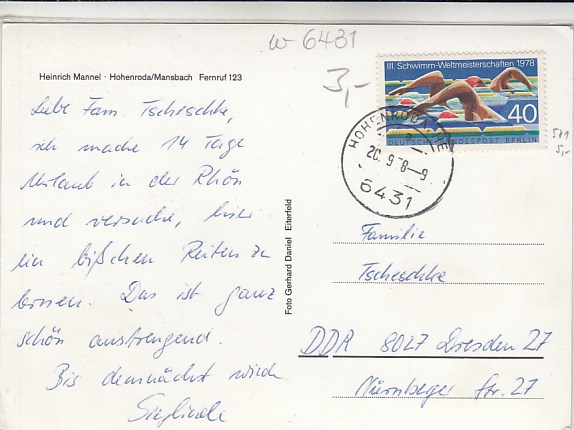 w 6431
3,-
Heinrich Mannel · Hohenroda/Mansbach Fernruf 123
Liebe Fam. Tscheschke,
ich mache 14 Tage
Urlaub in der Rhön
und versuche, hier
ein bißchen Reiten zu
lernen. Das ist ganz
schön anstrengend.
Bis demnächst wieder
Sieglinde
Foto Gerhard Daniel Eiterfeld
III. Schwimm-Weltmeisterschaften 1978
40
DEUTSCHE BUNDESPOST BERLIN
511
5,-
HOHENRODA
20.9.78-9
6431
Familie
Tscheschke
DDR 8027 Dresden 27
Nürnberger Str. 27